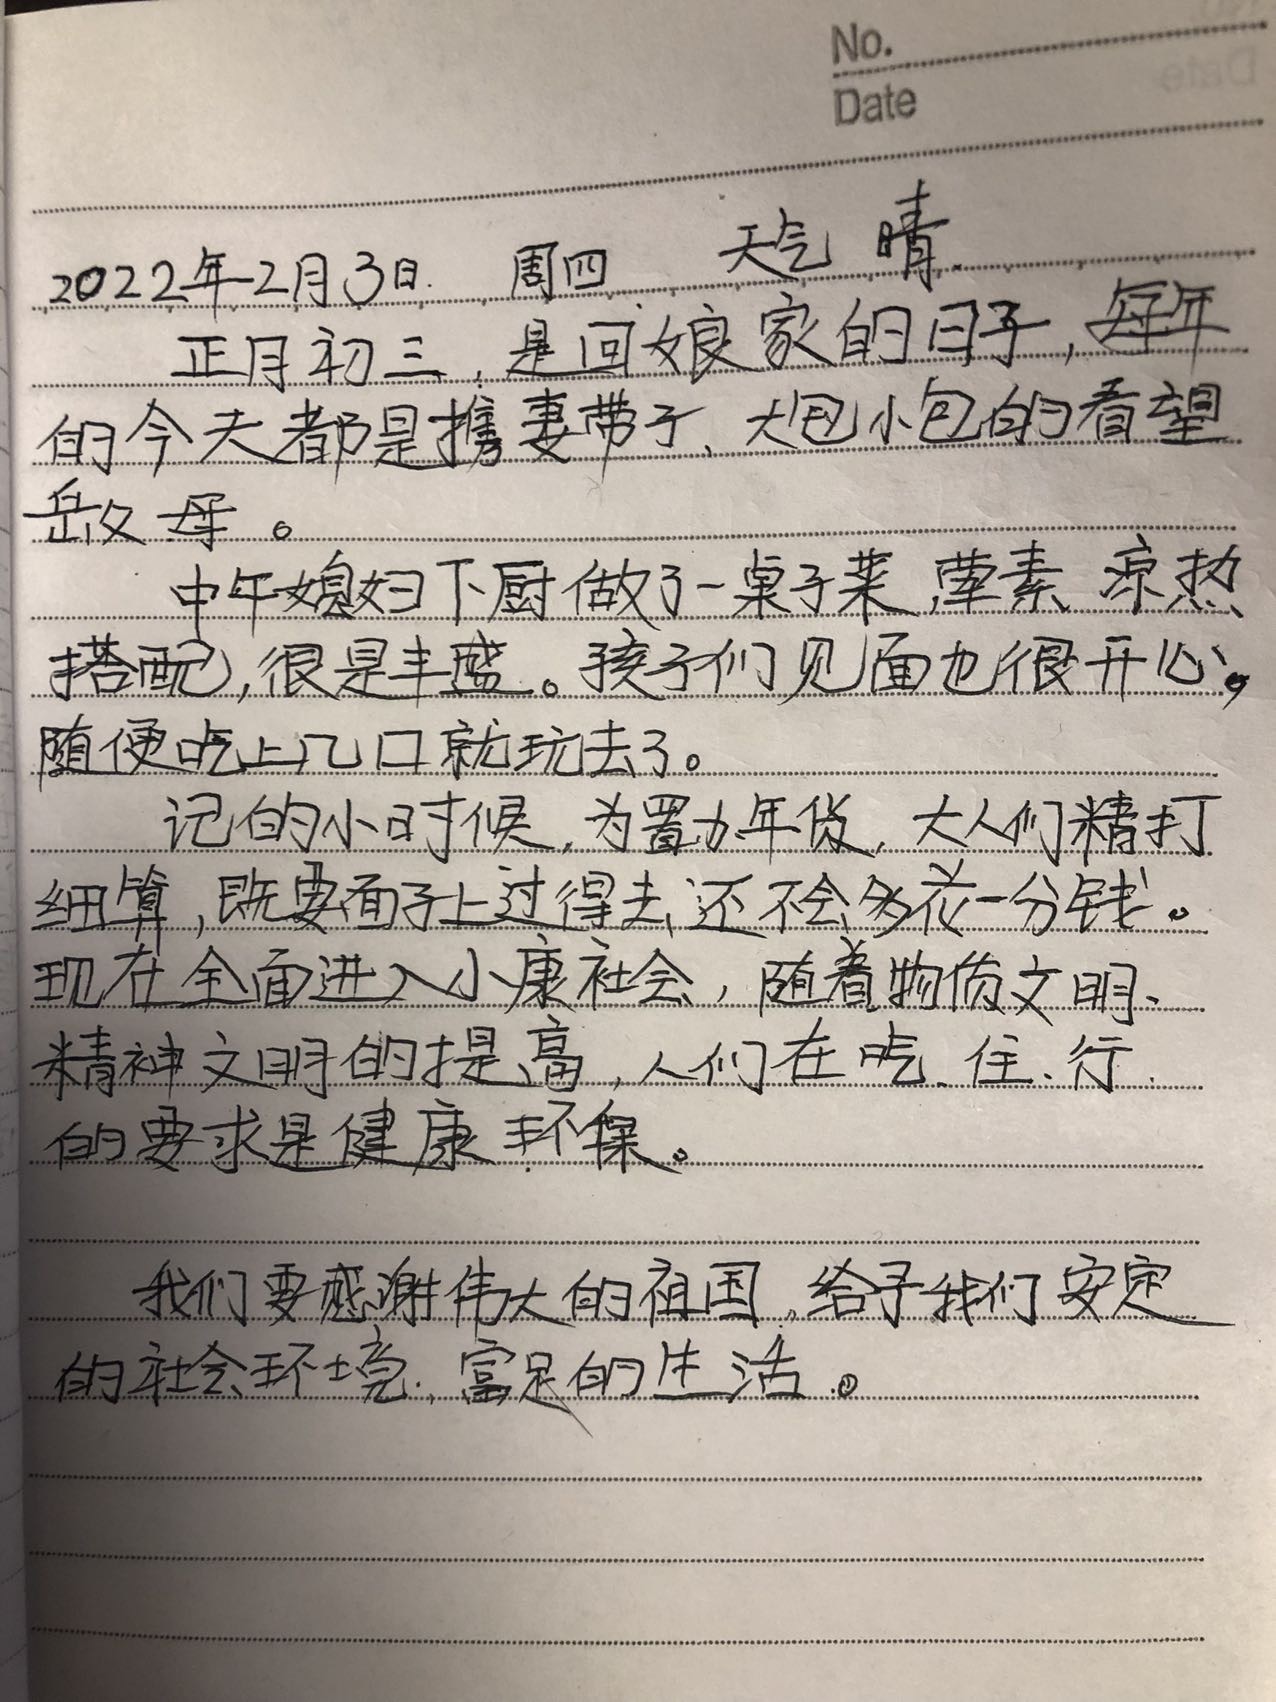 No.
Date
2022年2月3日. 周四 天气 晴.
正月初三,是回娘家的日子,每年
的今天都是携妻带子、大包小包的看望
岳父母。
中午媳妇下厨做了一桌子菜,荤素 凉热
搭配,很是丰盛。孩子们见面也很开心,
随便吃上几口就玩去了。
记的小时候,为置办年货,大人们精打
细算,既要面子上过得去,还不会多花一分钱。
现在全面进入小康社会,随着物质文明、
精神文明的提高,人们在吃、住、行
的要求是健康 环保。
我们要感谢伟大的祖国,给予我们安定
的社会环境,富足的生活。